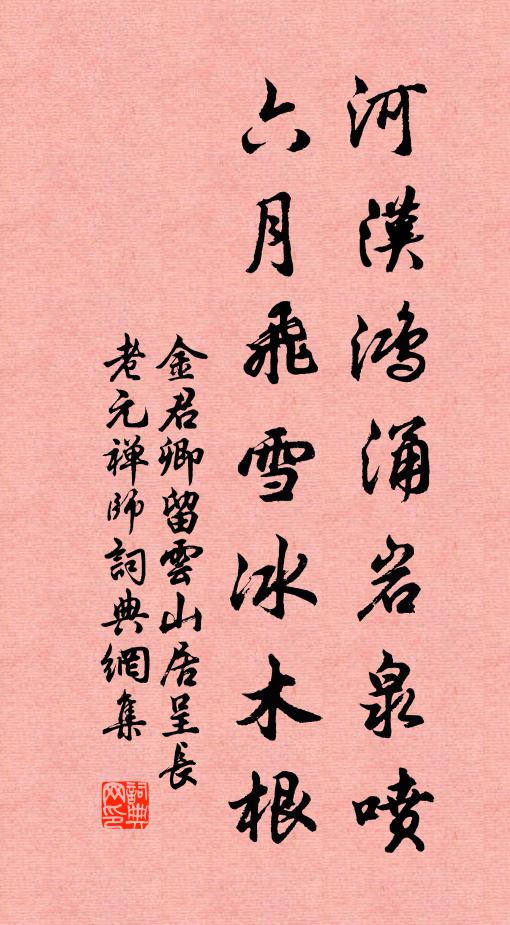 河漢鴻涌岩泉喷
六月飛雪冰木根
金君卿留雲山居呈長
老元禅師詞典網集
詞典网印